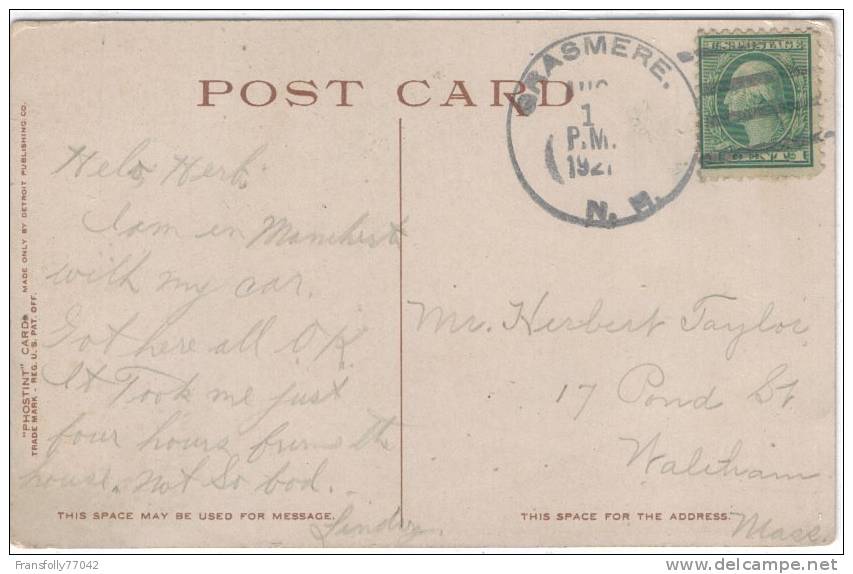 POST CARD
GRASMERE.
AUG
1
P.M.
192
N. H.
U.S. POSTAGE
"PHOSTINT" CARD MADE ONLY BY DETROIT PUBLISHING CO.
TRADE MARK - REG. U.S. PAT. OFF.
Helo, Herb,
I am in Manchester
with my car.
Got here all O.K.
It Took me just
four hours from the
house. not So bad.
THIS SPACE MAY BE USED FOR MESSAGE.
Mr. Herbert Taylor
17 Pond St
Waltham
Mass.
THIS SPACE FOR THE ADDRESS.
Fransfolly77042
delcampe.net